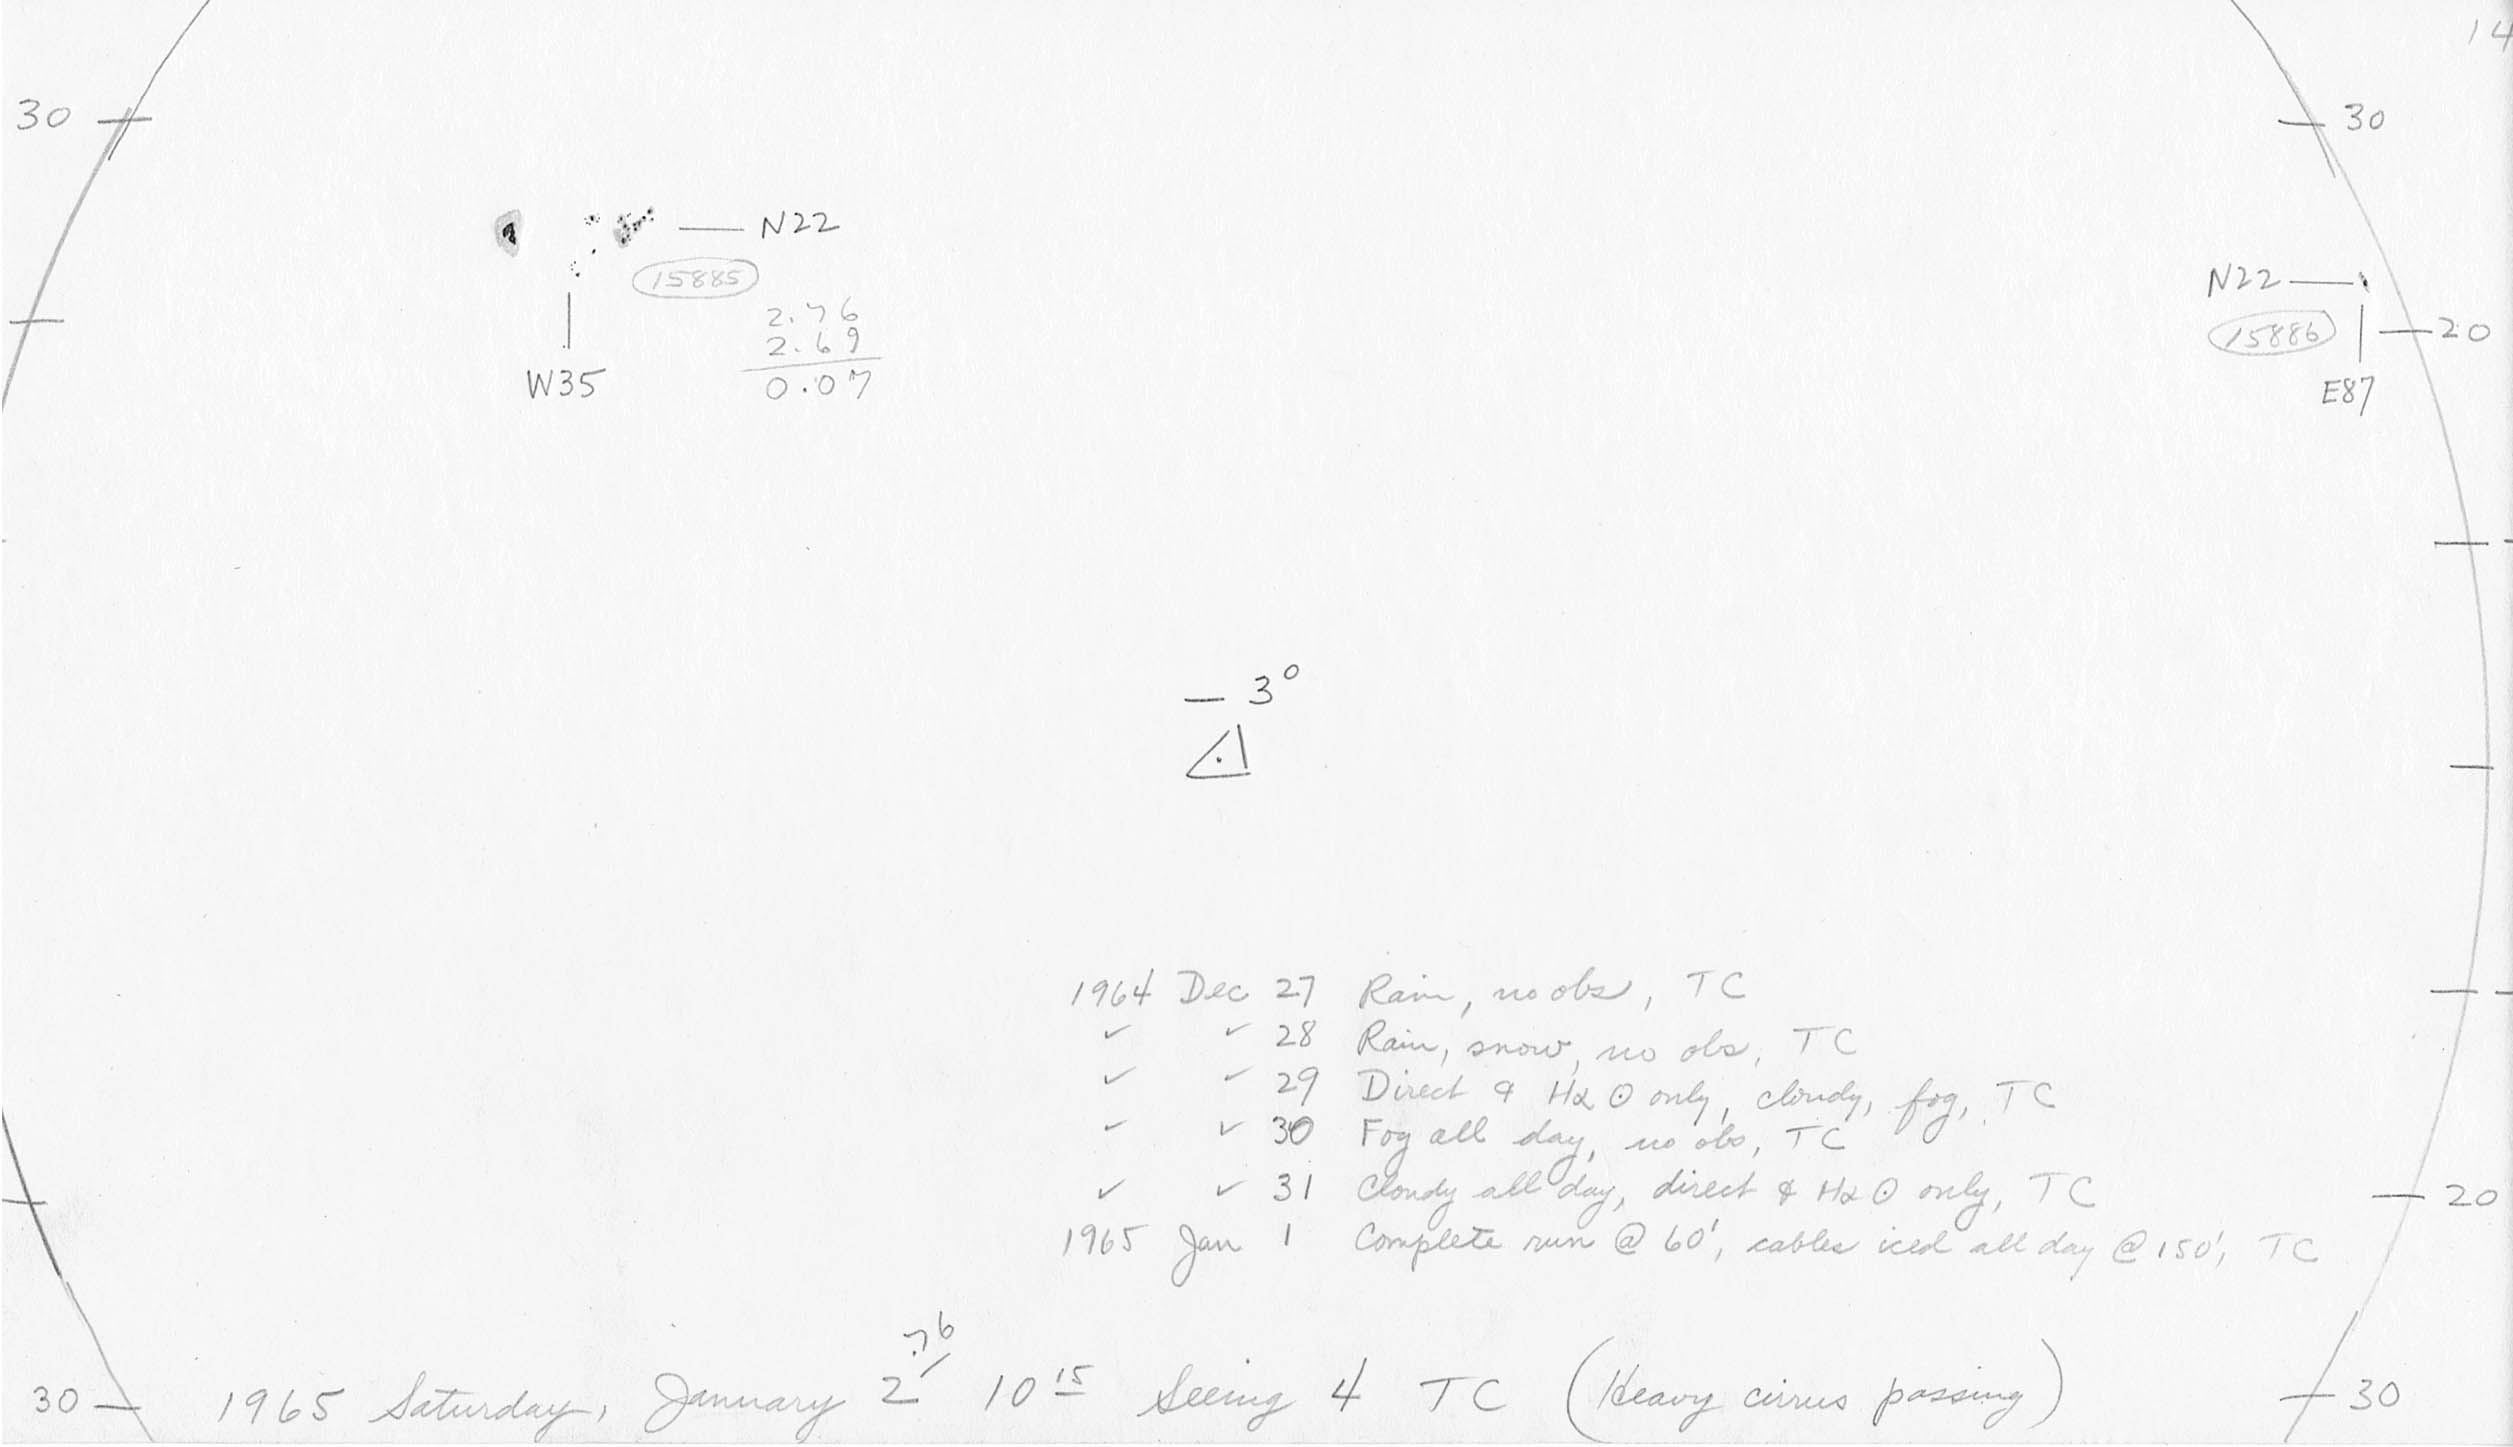 14
30
30
N22
15885
N22
2.76
2.69
0.07
15886
20
W35
E87
- 3°
1964 Dec 27 Rain, no obs, TC
✓ ✓ 28 Rain, snow, no obs, TC
✓ ✓ 29 Direct & Hα ⊙ only, cloudy, fog, TC
✓ ✓ 30 Fog all day, no obs, TC
✓ ✓ 31 Cloudy all day, direct & Hα ⊙ only, TC
20
1965 Jan 1 Complete run @ 60', cables iced all day @ 150', TC
.76
30 1965 Saturday, January 2 10 15 Seeing 4 TC (Heavy cirrus passing) 30